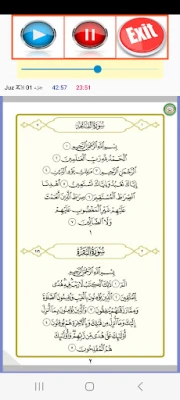 Exit
Juz 
جزء 01 42:57 23:51
سورة الفاتحة
بسم الله الرحمن الرحيم ١
الحمد لله رب العالمين ٢
الرحمن الرحيم ٣ مالك يوم الدين ٤
إياك نعبد وإياك نستعين ٥ اهدنا
الصراط المستقيم ٦ صراط الذين أنعمت
عليهم غير المغضوب عليهم
ولا الضالين ٧
١
سورة البقرة
بسم الله الرحمن الرحيم
الم ١ ذلك الكتاب لا ريب فيه هدى
للمتقين ٢ الذين يؤمنون بالغيب ويقيمون الصلاة
ومما رزقناهم ينفقون ٣ والذين يؤمنون بما أنزل
إليك وما أنزل من قبلك وبالآخرة هم يوقنون ٤
أولئك على هدى من ربهم وأولئك
هم المفلحون ٥
٢